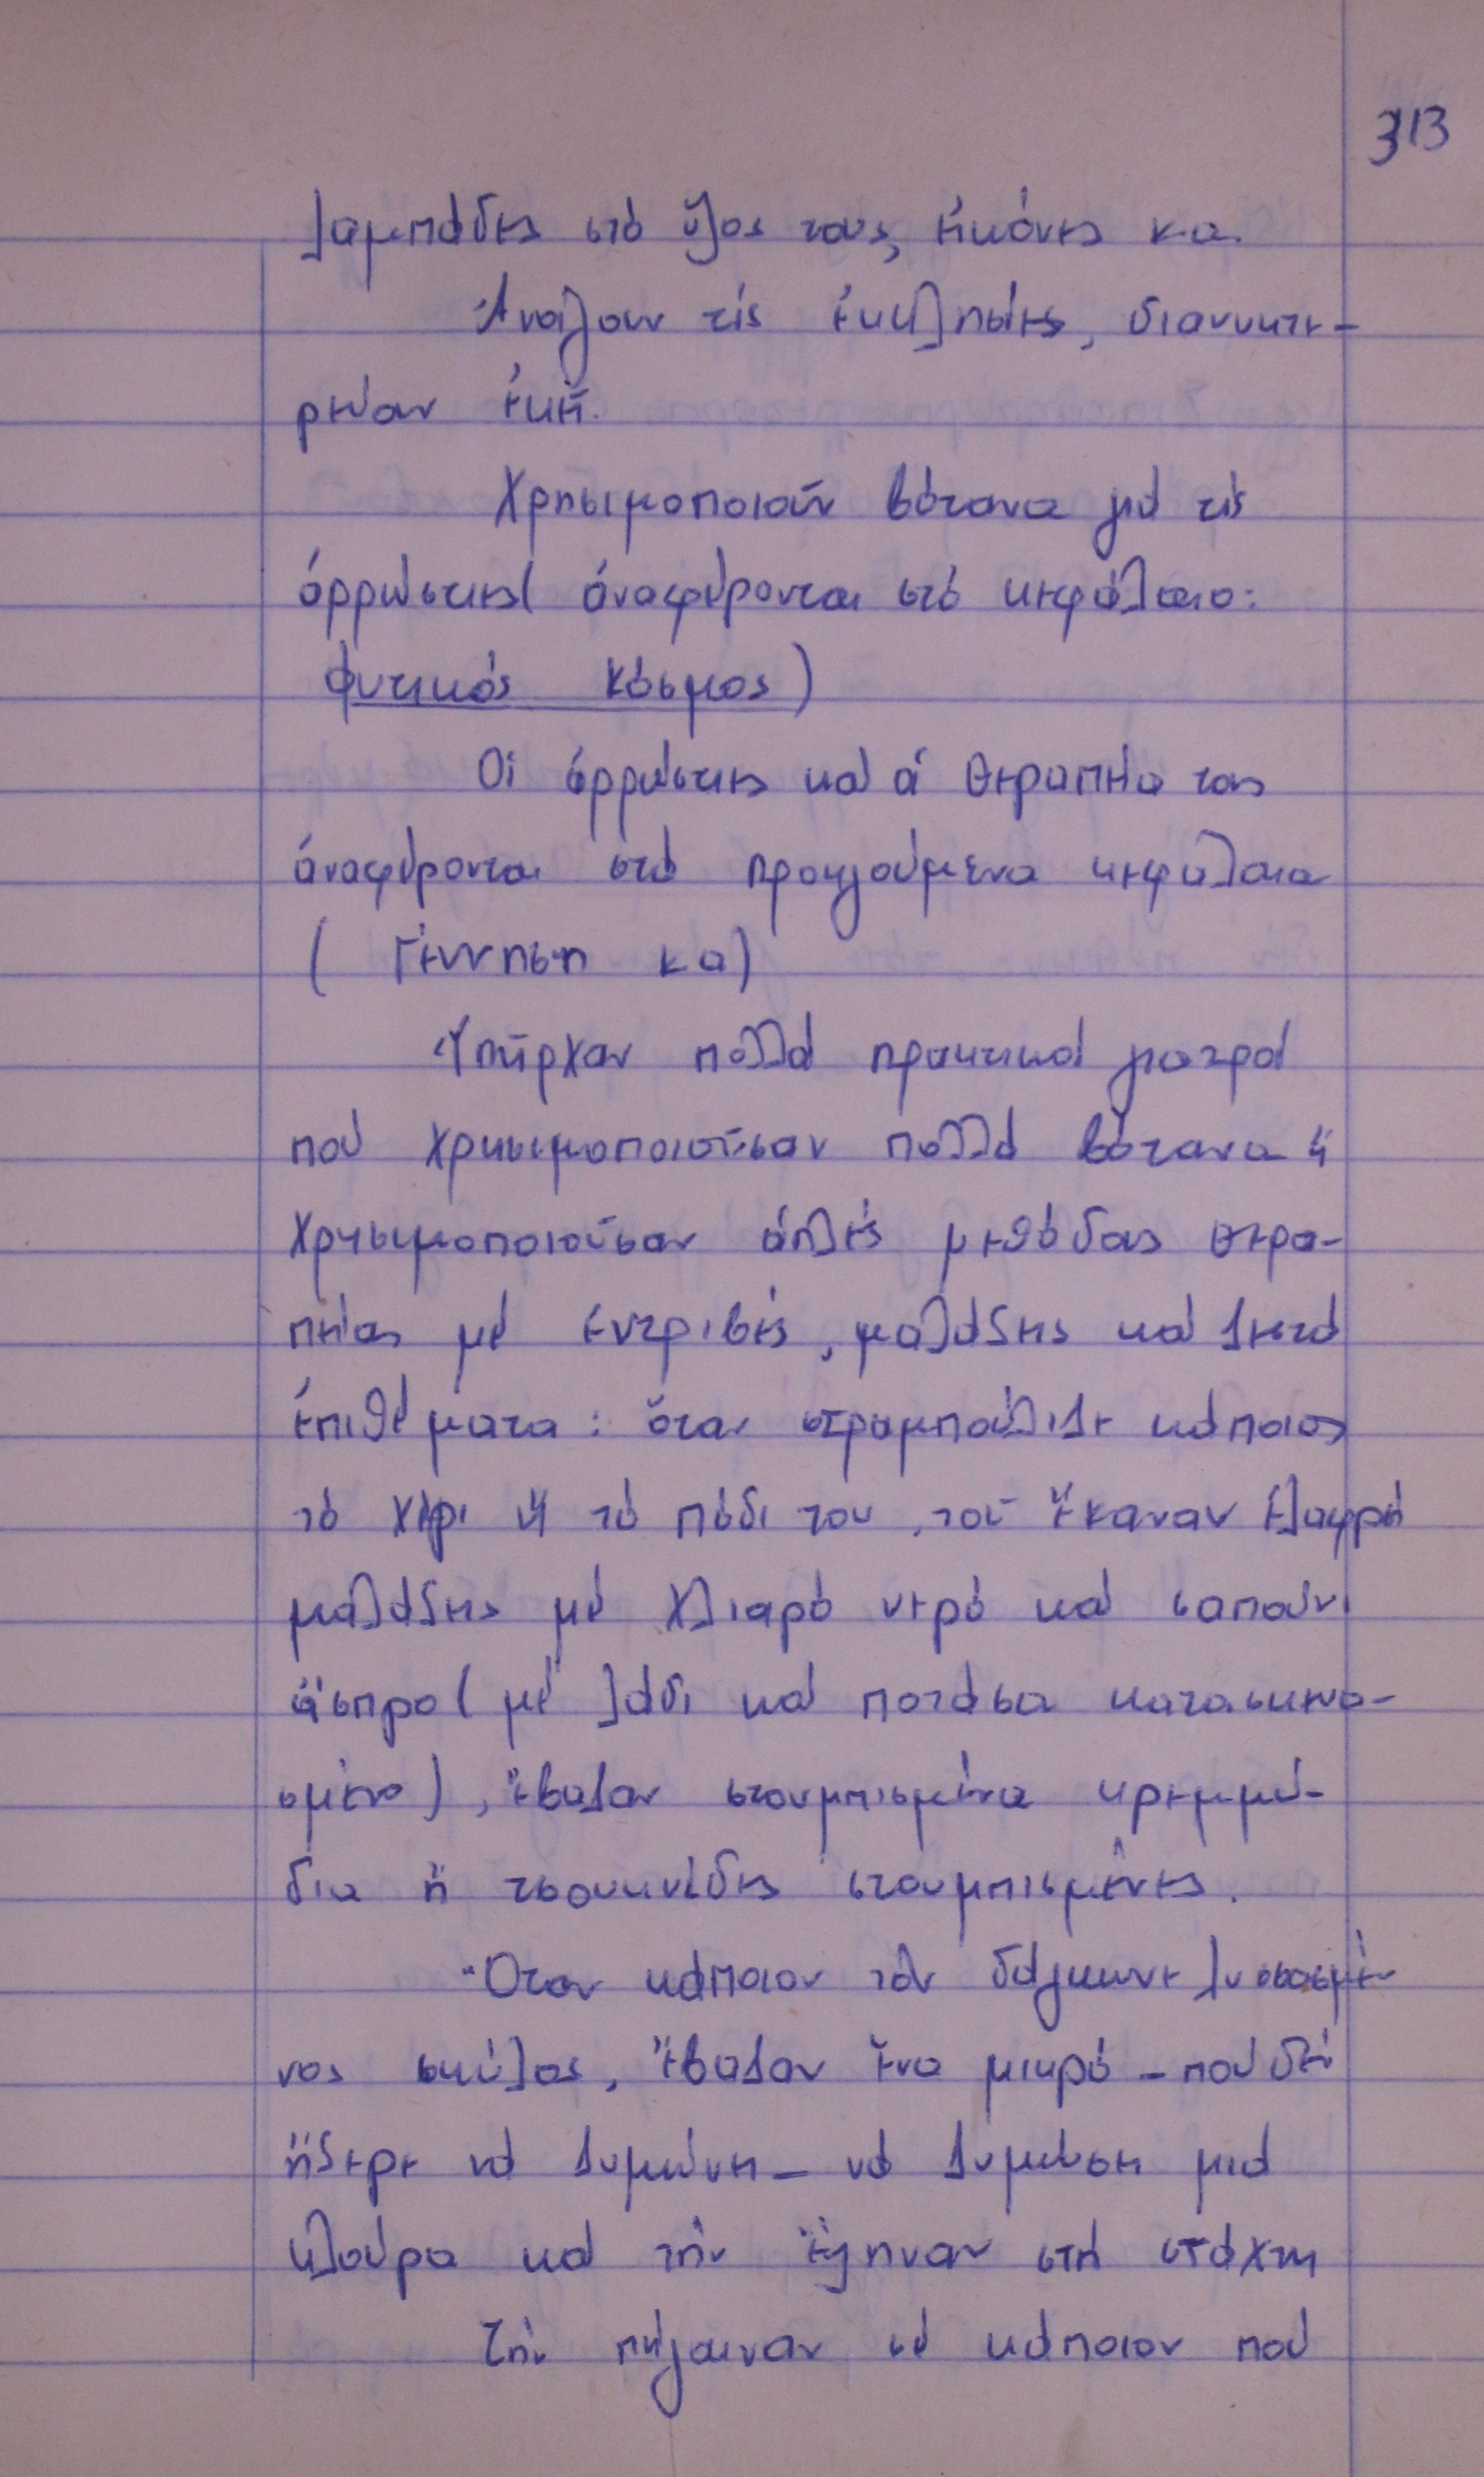 313
λαμπάδες στό ὕψος τους, εἰκόνες κ.α.
Ἀνοίγουν τίς ἐκκλησίες, διανυκτε-
ρεύουν ἐκεῖ.
Χρησιμοποιοῦν βότανα γιά τίς
ἀρρώστιες (ἀναφέρονται στό κεφάλαιο:
Φυτικός Κόσμος)
Οἱ ἀρρώστιες καί ἡ θεραπεία τους
ἀναφέρονται στά προηγούμενα κεφάλαια
( Γέννηση κ.α)
Ὑπῆρχαν πολλοί πρακτικοί γιατροί
πού χρησιμοποιοῦσαν πολλά βότανα ἤ
χρησιμοποιοῦσαν ἁπλές μεθόδους θερα-
πείας μέ ἐντριβές, μαλάξεις καί ζεστά
ἐπιθέματα: ὅταν στραμπούλιζε κάποιος
τό χέρι ἤ τό πόδι του, τοῦ ἔκαναν ἐλαφρές
μαλάξεις μέ χλιαρό νερό καί σαπούνι
ἄσπρο (μέ λάδι καί ποτάσα κατασκευα-
σμένο), ἔβαζαν στουμπισμένα κρεμμύ-
δια ἤ τσουκνίδες στουμπισμένες.
Ὅταν κάποιον τόν δάγκωνε λυσσασμέ-
νος σκύλος, ἔβαζαν ἕνα μικρό - πού δέν
ἤξερε νά ζυμώνει - νά ζυμώσει μιά
κλούρα καί τήν ἔψηναν στή στάχτη
Τήν πήγαιναν σέ κάποιον πού